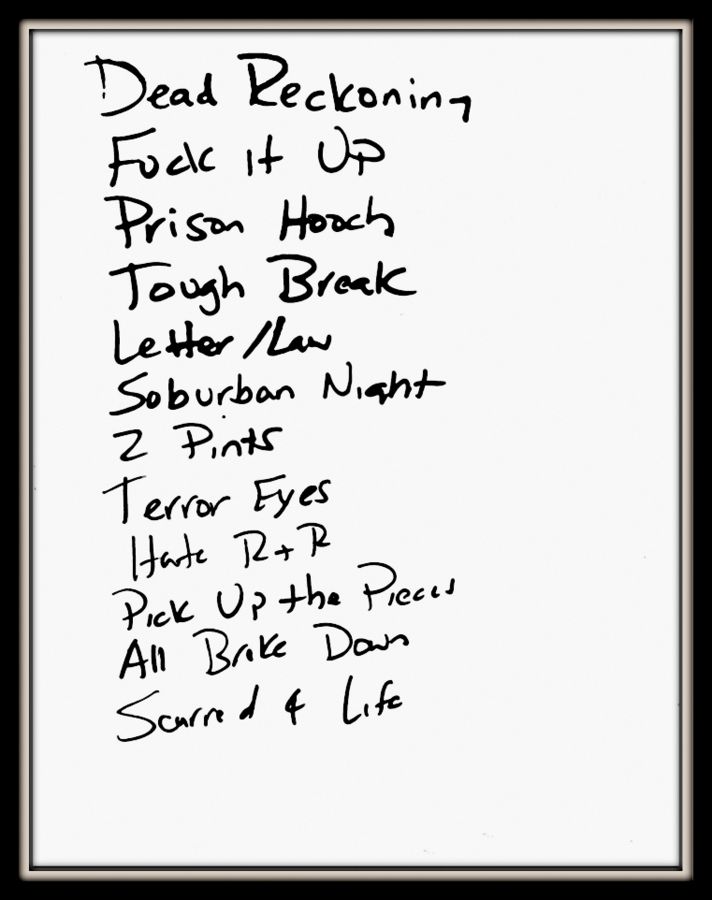 Dead Reckoning
Fuck it Up
Prison Hooch
Tough Break
Letter/Law
Soburban Night
2 Pints
Terror Eyes
Hate R+R
Pick Up the Pieces
All Broke Down
Scarred 4 Life